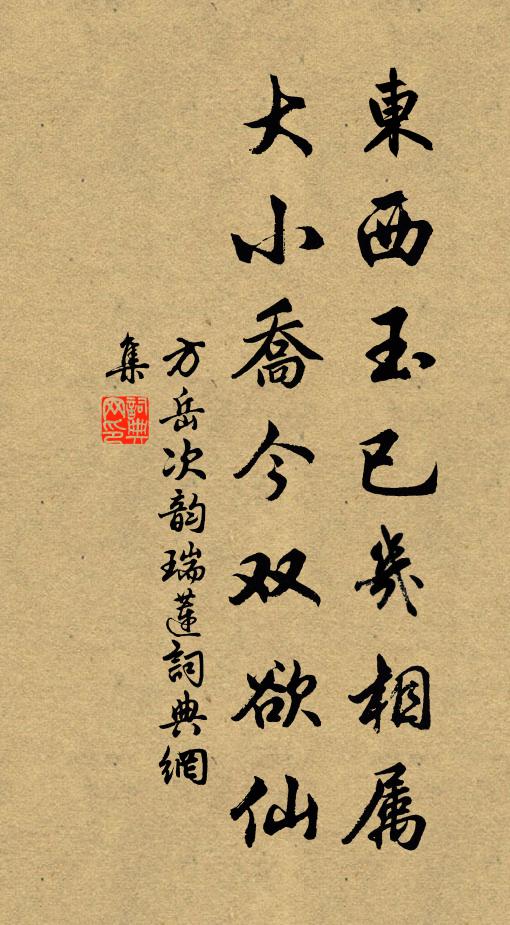 東西玉已幾相属
大小喬今双欲仙
方岳次韵瑞蓮詞典網
集
詞典
网印